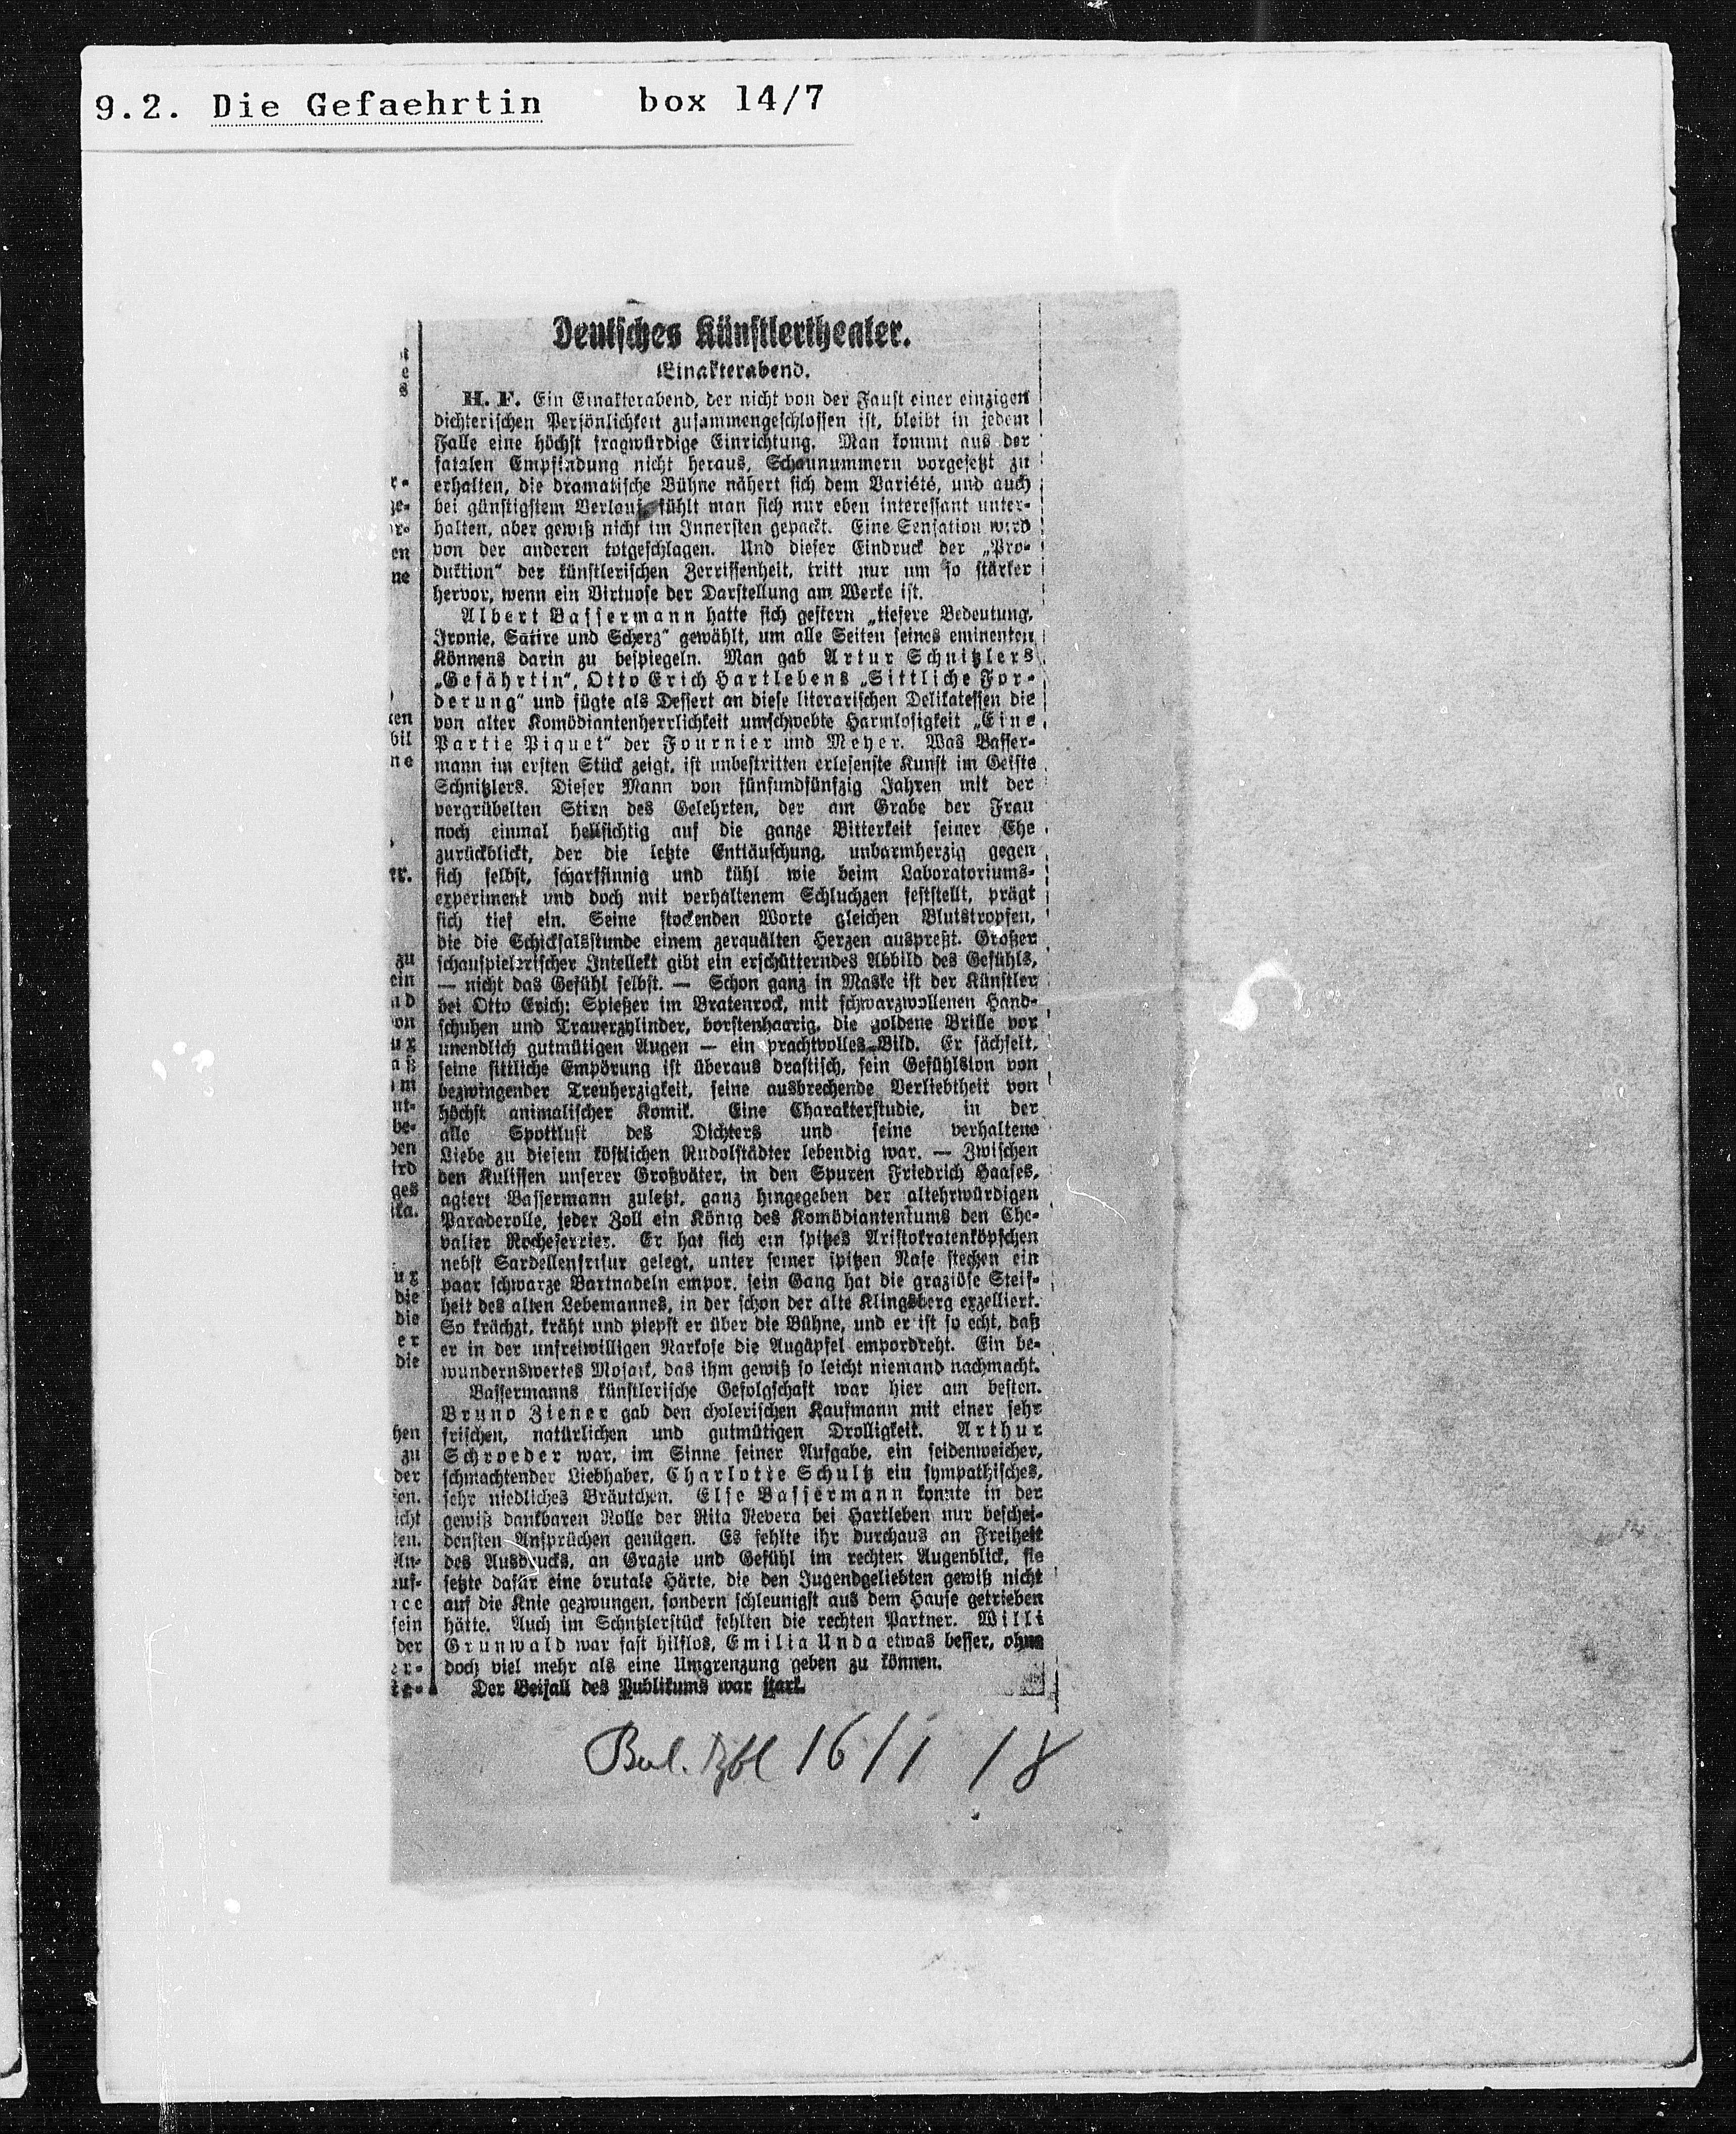 9.2. Die Gefaehrtin box 14/7
Deutsches Künstlertheater.
Einakterabend.
H. F. Ein Einakterabend, der nicht von der Faust einer einzigen
dichterischen Persönlichkeit zusammengeschlossen ist, bleibt in jedem
Falle eine höchst fragwürdige Einrichtung. Man kommt aus der
fatalen Empfindung nicht heraus, Schaunummern vorgesetzt zu
erhalten, die dramatische Bühne nähert sich dem Variété, und auch
bei günstigstem Verlauf fühlt man sich nur eben interessant unter-
halten, aber gewiß nicht im Innersten gepackt. Eine Sensation wird
von der anderen totgeschlagen. Und dieser Eindruck der „Pro-
duktion“ der künstlerischen Zerrissenheit, tritt nur um so stärker
hervor, wenn ein Virtuose der Darstellung am Werke ist.
Albert Bassermann hatte sich gestern „tiefere Bedeutung,
Ironie, Satire und Scherz“ gewählt, um alle Seiten seines eminenten
Könnens darin zu bespiegeln. Man gab Artur Schnitzlers
„Gefährtin“, Otto Erich Hartlebens „Sittliche For-
derung“ und fügte als Dessert an diese literarischen Delikatessen die
von alter Komödiantenherrlichkeit umschwebte Harmlosigkeit „Eine
Partie Piquet“ der Fournier und Meyer. Was Basser-
mann im ersten Stück zeigt, ist unbestritten erlesenste Kunst im Geiste
Schnitzlers. Dieser Mann von fünfundfünfzig Jahren mit der
vergrübelten Stirn des Gelehrten, der am Grabe der Frau
noch einmal hellsichtig auf die ganze Bitterkeit seiner Ehe
zurückblickt, der die letzte Enttäuschung, unbarmherzig gegen
sich selbst, scharfsinnig und kühl wie beim Laboratoriums-
experiment und doch mit verhaltenem Schluchzen feststellt, prägt
sich tief ein. Seine stockenden Worte gleichen Blutstropfen,
die die Schicksalsstunde einem zerquälten Herzen auspreßt. Großer
schauspielerischer Intellekt gibt ein erschütterndes Abbild des Gefühls,
— nicht das Gefühl selbst. — Schon ganz in Maske ist der Künstler
bei Otto Erich: Spießer im Bratenrock, mit schwarzwollenen Hand-
schuhen und Trauerzylinder, borstenhaarig, die goldene Brille vor
unendlich gutmütigen Augen — ein prachtvolles Bild. Er sächselt,
seine sittliche Empörung ist überaus drastisch, sein Gefühlston von
bezwingender Treuherzigkeit, seine ausbrechende Verliebtheit von
höchst animalischer Komik. Eine Charakterstudie, in der
alle Spottlust des Dichters und seine verhaltene
Liebe zu diesem köstlichen Rudolstädter lebendig war. — Zwischen
den Kulissen unserer Großväter, in den Spuren Friedrich Haases,
agiert Bassermann zuletzt, ganz hingegeben der altehrwürdigen
Paraderolle, jeder Zoll ein König des Komödiantentums den Che-
valier Rocheferrier. Er hat sich ein spitzes Aristokratenköpfchen
nebst Sardellenfrisur gelegt, unter seiner spitzen Nase stechen ein
paar schwarze Bartnadeln empor, sein Gang hat die graziöse Steif-
heit des alten Lebemannes, in der schon der alte Klingsberg exzelliert.
So krächzt, kräht und piepst er über die Bühne, und er ist so echt, daß
er in der unfreiwilligen Narkose die Augäpfel empordreht. Ein be-
wundernswertes Mosaik, das ihm gewiß so leicht niemand nachmacht.
Bassermanns künstlerische Gefolgschaft war hier am besten.
Bruno Ziener gab den cholerischen Kaufmann mit einer sehr
frischen, natürlichen und gutmütigen Drolligkeit. Arthur
Schroeder war, im Sinne seiner Aufgabe, ein seidenweicher,
schmachtender Liebhaber, Charlotte Schultz ein sympathisches,
sehr niedliches Bräutchen. Else Bassermann konnte in der
gewiß dankbaren Rolle der Rita Revera bei Hartleben nur beschei-
densten Ansprüchen genügen. Es fehlte ihr durchaus an Freiheit
des Ausdrucks, an Grazie und Gefühl im rechten Augenblick, sie
setzte dafür eine brutale Härte, die den Jugendgeliebten gewiß nicht
auf die Knie gezwungen, sondern schleunigst aus dem Hause getrieben
hätte. Auch im Schnitzlerstück fehlten die rechten Partner. Willi
Grunwald war fast hilflos, Emilia Unda etwas besser, ohne
doch viel mehr als eine Umgrenzung geben zu können.
Der Beifall des Publikums war stark.
16/1 18